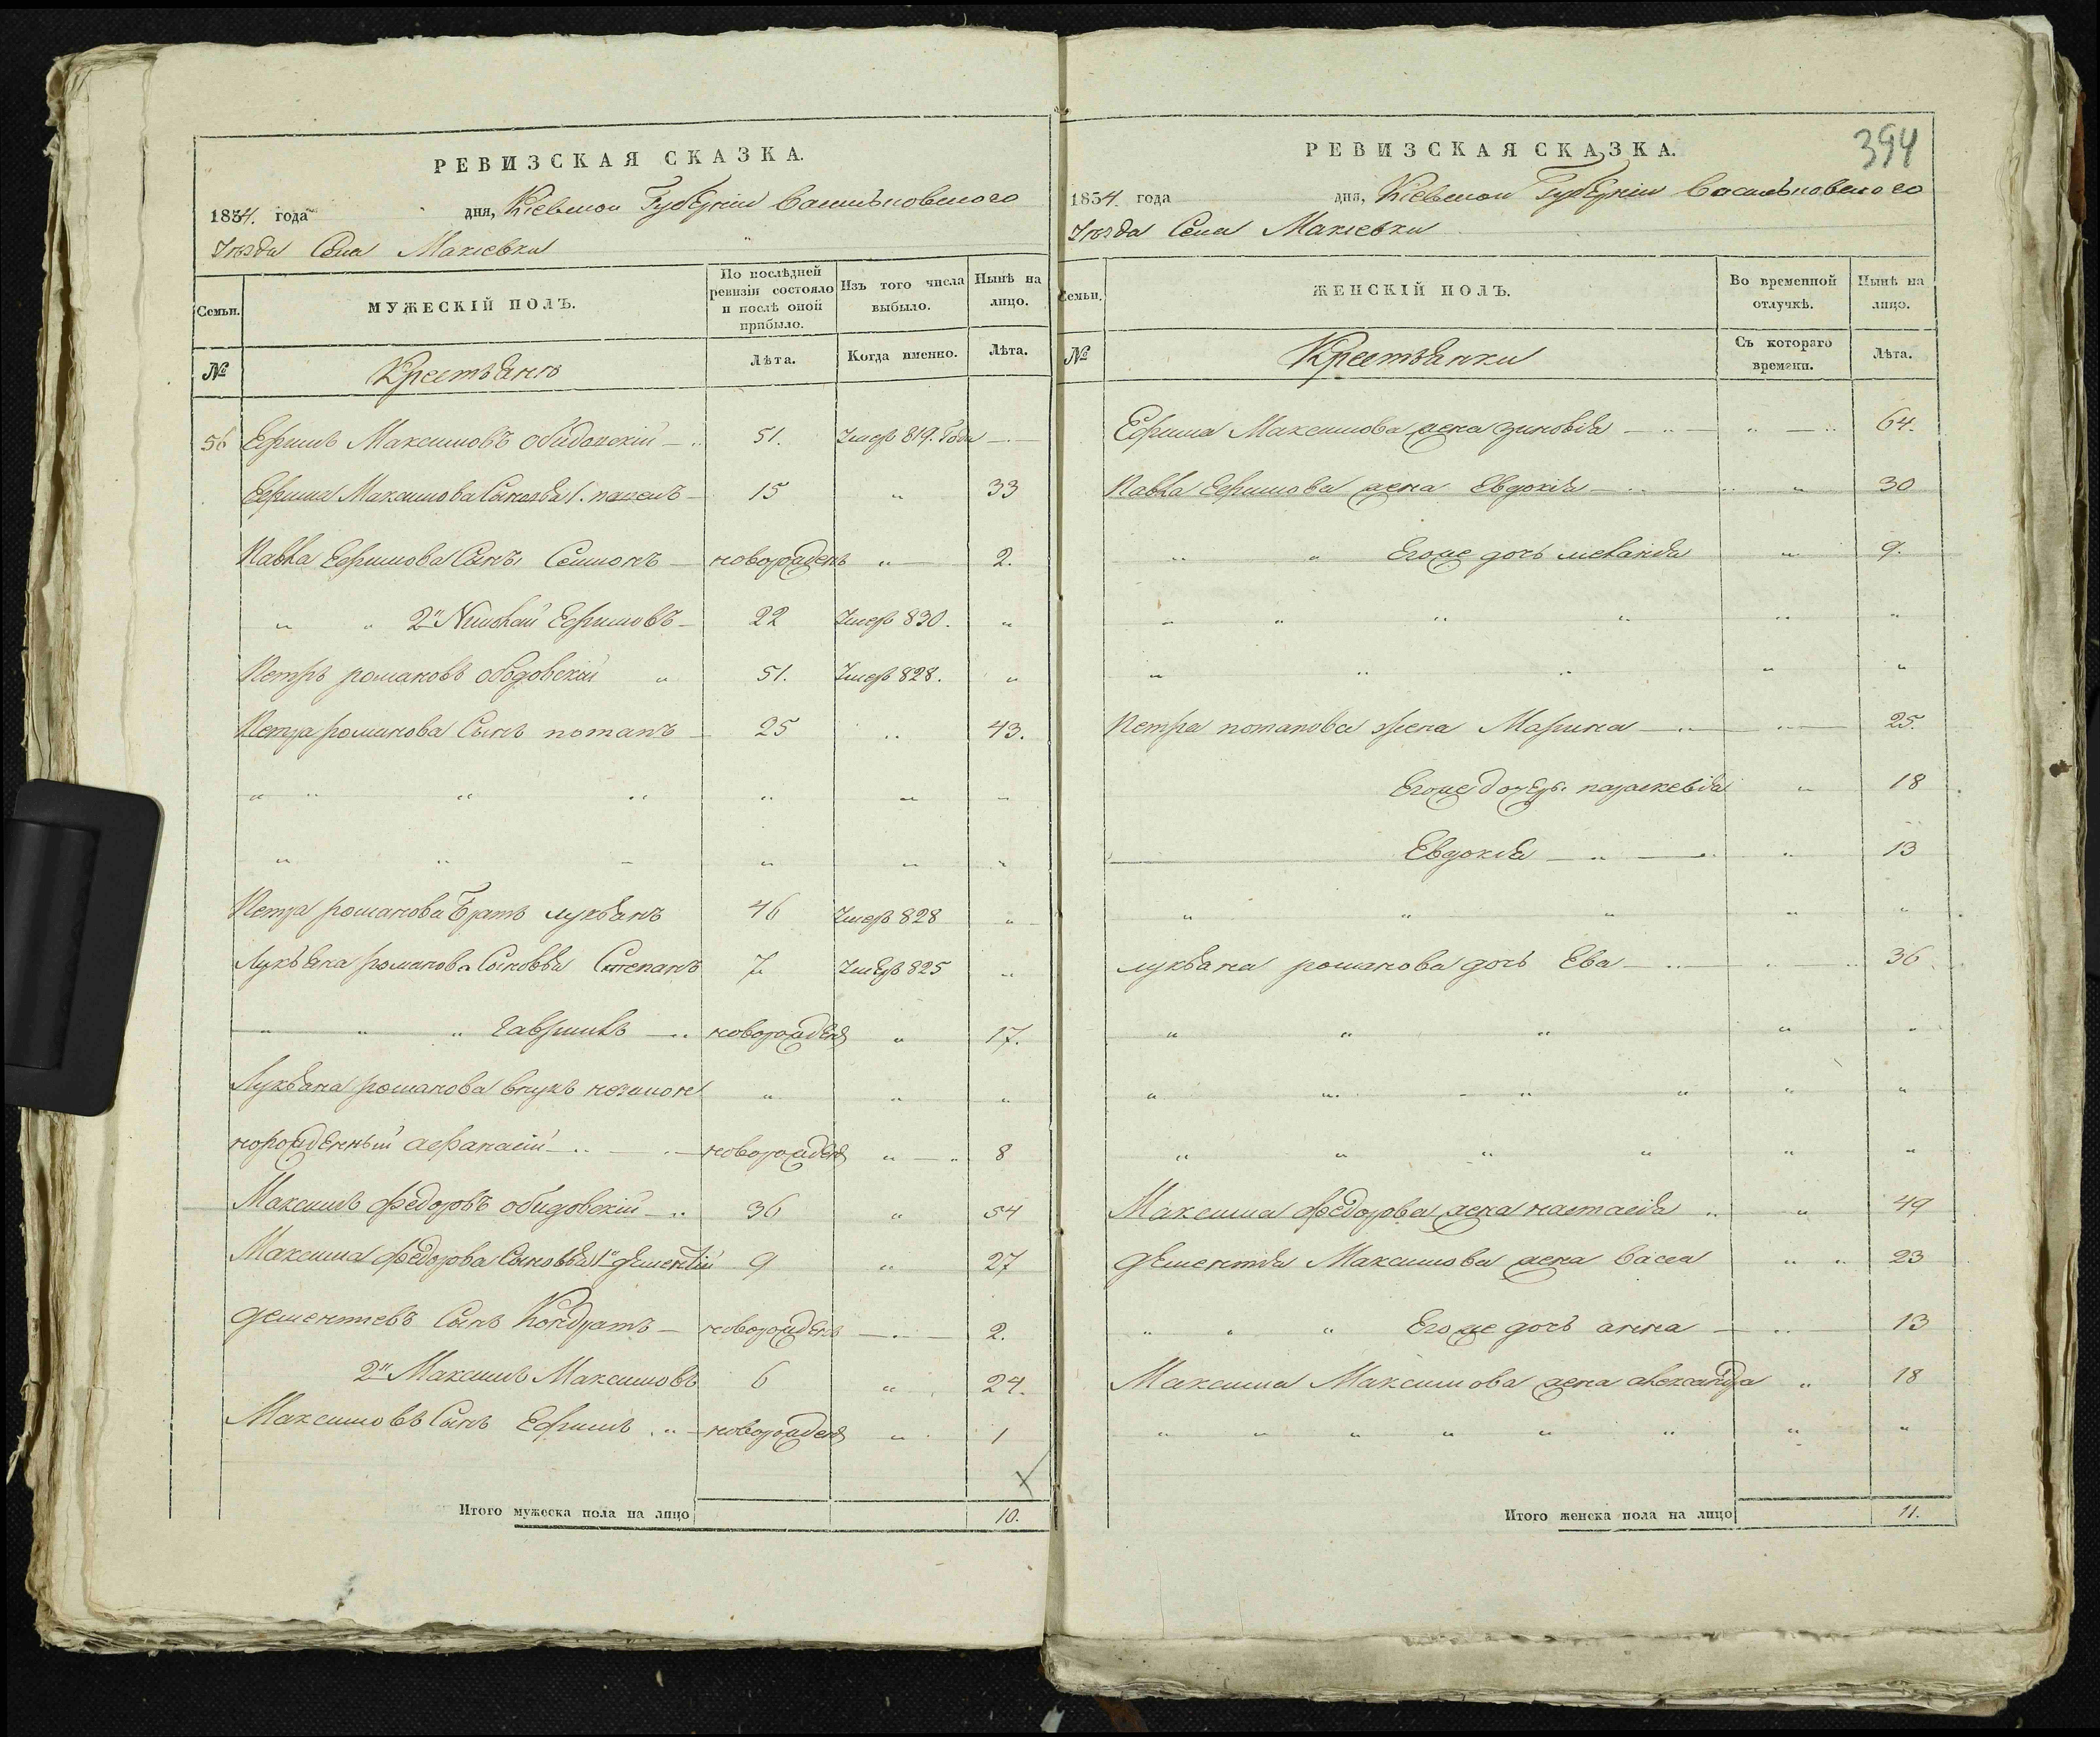 РЕВИЗСКАЯ СКАЗКА.
1834. года дня, Кіевской Губерніи Васильковского
Уезда Села Макіевки
Семьи. МУЖЕСКІЙ ПОЛЪ. По послѣдней ревизіи состояло и послѣ оной прибыло. Изъ того числа выбыло. Нынѣ на лицо.
№ Крестьянъ Лѣта. Когда именно. Лѣта.
56 Ефимъ Максимовъ 51. Умеръ 819. Года
Ефима Максимова Сыновья 1. павелъ 15 " 33
Павла Ефимова Сынъ Семионъ новорожденъ " 2.
" " 2й Николай Ефимовъ 22 Умеръ 830. "
Петръ романовъ обидовскій " 51. Умеръ 828. "
Петра романова Сынъ потапъ 25 " 43.
" " " " " " "
" " " " " "
Петра романова Братъ лукьянъ 46 Умеръ 828 "
Лукьяна романова Сыновья Степанъ 7 Умеръ 825 "
" " " Гаврилъ новорожденъ " 17.
Лукьяна романова внукъ незакон " " "
норожденный афанасій новорожденъ " " 8
Максимъ федоровъ обидовскій 36 " 54
Максима федорова Сыновья 1й дементій 9 " 27
дементіевъ Сынъ Кондратъ новорожденъ " 2.
2й Максимъ Максимовъ 6 " 24.
Максимовъ Сынъ Ефимъ новорожденъ " 1
Итого мужеска пола на лицо 10.
394
РЕВИЗСКАЯ СКАЗКА.
1834. года дня, Кіевской Губерніи Васильковского
Уезда Села Макіевки
Семьи. ЖЕНСКІЙ ПОЛЪ. Во временной отлучкѣ. Нынѣ на лицо.
№ Крестьянки Съ котораго времени. Лѣта.
Ефима Максимова жена зиновія " " 64.
Павла Ефимова жена Евдокія " " 30
" " Егоже дочь меланія " 9.
" " " " " "
" " " " "
Петра потапова жена Марина " 25.
Егоже дочери параскевія " 18
Евдокія " " 13
" " " " "
лукьяна романова дочь Ева " 36
" " " " "
" " " " " "
" " " " " "
Максима федорова жена настасія " " 49
дементія Максимова жена васса " " 23
" " " Егоже дочь анна " 13
Максима Максимова жена александра " 18
" " " " " " " "
Итого женска пола на лицо 11.